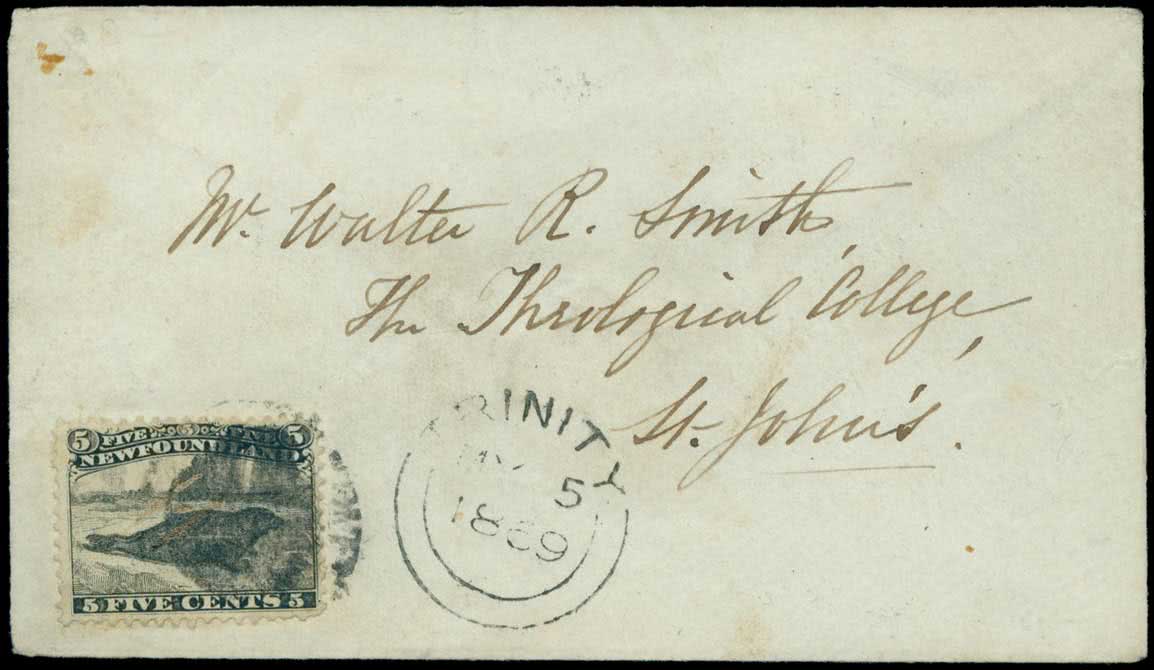 Mr. Walter R. Smith,
The Theological College,
St. John's.
5 FIVE 5 5
NEWFOUNDLAND
5 FIVE CENTS 5
TRINITY
5
1869